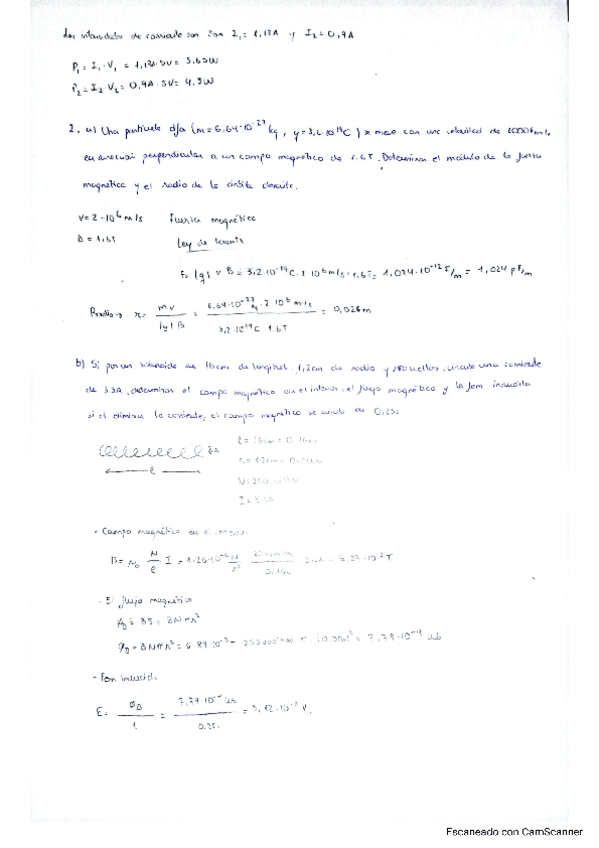 Las intensidades de corriente son I₁ = 1,13A y I₂ = 0,9A
P₁ = I₁ · V₁ = 1,13A · 5V = 5,65W
P₂ = I₂ · V₂ = 0,9A · 5V = 4,5W
2. a) Una partícula alfa (m = 6,64·10⁻²⁷ kg, q = 3,2·10⁻¹⁹C) se mueve con una velocidad de
en dirección perpendicular a un campo magnético de 1.6T. Determinar el módulo de la fuerza
magnética y el radio de la órbita descrita.
V = 2·10⁶ m/s Fuerza magnética
B = 1,6T Ley de Lorentz
F = |q| v B = 3,2·10⁻¹⁹C · 2·10⁶ m/s · 1,6T = 1,024·10⁻¹² F/m = 1,024 pF/m
Radio → r = mv / |q| B = 6,64·10⁻²⁷ kg · 2·10⁶ m/s / 3,2·10⁻¹⁹C · 1.6T = 0,026m
b) Si por un solenoide de 16cm de longitud, 1,2cm de radio y vueltas, circula una corriente
de 3.5A, determinar el campo magnético en el interior, el flujo magnético y la fem inducida
si al eliminar la corriente, el campo magnético se anula en 0.25s
l = 16cm = 0.16m
l
- Campo magnético en el interior
B = μ₀ N/l I = 1,26·10⁻⁶
- El flujo magnético
ϕB = BS = BNπr²
ϕB = BNπr² = = 7,79·10⁻⁴ Wb
- Fem inducida
E = ϕB / t = 7,79·10⁻⁴ Wb / 0.25s = 3,12·10⁻³ V.
Escaneado con CamScanner